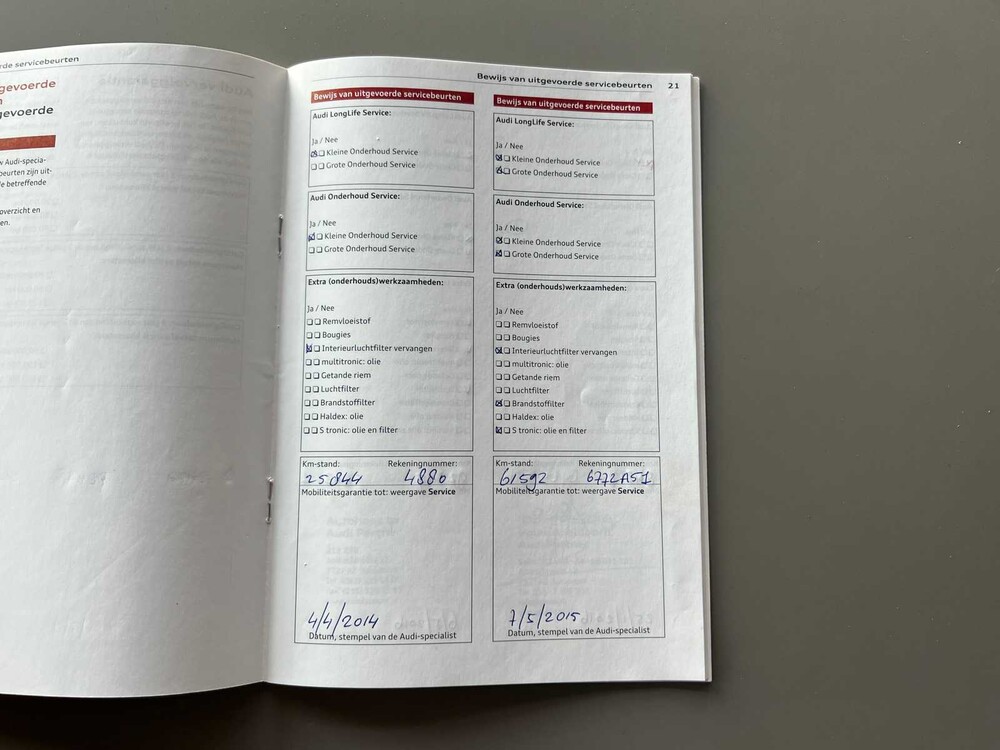 rde servicebeurten
gevoerde
n
gevoerde
w Audi-specia-
beurten zijn uit-
e betreffende
overzicht en
en.
Bewijs van uitgevoerde servicebeurten 21
Bewijs van uitgevoerde servicebeurten
Audi LongLife Service:
Ja / Nee
Kleine Onderhoud Service
Grote Onderhoud Service
Audi Onderhoud Service:
Ja / Nee
Kleine Onderhoud Service
Grote Onderhoud Service
Extra (onderhouds)werkzaamheden:
Ja / Nee
Remvloeistof
Bougies
Interieurluchtfilter vervangen
multitronic: olie
Getande riem
Luchtfilter
Brandstoffilter
Haldex: olie
S tronic: olie en filter
Km-stand: Rekeningnummer:
25844 4880
Mobiliteitsgarantie tot: weergave Service
4/4/2014
Datum, stempel van de Audi-specialist
Bewijs van uitgevoerde servicebeurten
Audi LongLife Service:
Ja / Nee
Kleine Onderhoud Service
Grote Onderhoud Service
Audi Onderhoud Service:
Ja / Nee
Kleine Onderhoud Service
Grote Onderhoud Service
Extra (onderhouds)werkzaamheden:
Ja / Nee
Remvloeistof
Bougies
Interieurluchtfilter vervangen
multitronic: olie
Getande riem
Luchtfilter
Brandstoffilter
Haldex: olie
S tronic: olie en filter
Km-stand: Rekeningnummer:
61592 6772A51
Mobiliteitsgarantie tot: weergave Service
7/5/2015
Datum, stempel van de Audi-specialist